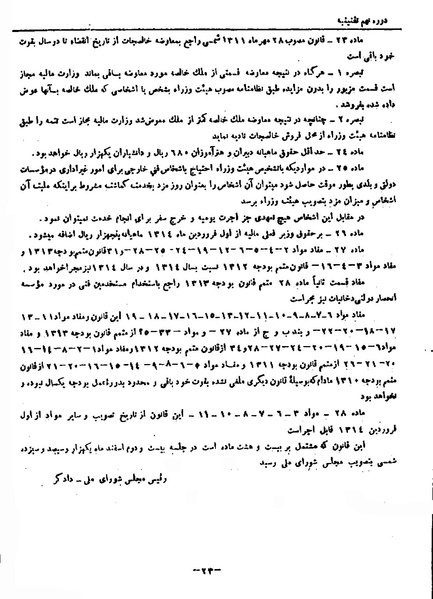 دوره نهم تقنینیه
ماده ۲۳ - قانون مصوب ۲۸ مهرماه ۱۳۱۱ شمسی راجع بمعاوضه خالصجات از تاریخ انقضاء تا دو سال بقوت
خود باقی است
تبصره ۱ - هرگاه در نتیجه معاوضه قسمتی از ملک خالصه مورد معاوضه باقی بماند وزارت مالیه مجاز
است قسمت مزبور را بدون مزایده طبق نظامنامه مصوب هیئت وزراء بشخص یا اشخاصی که ملک خالصه بآنها عوض
داده شده بفروشد.
تبصره ۲ - چنانچه در نتیجه معاوضه ملک خالصه کمتر از ملک معوض شد وزارت مالیه مجاز است تتمه را طبق
نظامنامه هیئت وزراء از محل فروش خالصجات تادیه نماید
ماده ۲۴ - حداقل حقوق ماهیانه دبیران و هنرآموزان ۶۸۰ ریال و دانشیاران یکهزار ریال خواهد بود.
ماده ۲۵ - در مواردیکه باتشخیص هیئت وزراء احتیاج باشخاص فنی خارجی برای امور غیراداری در مؤسسات
دولتی و بلدی بطور موقت حاصل شود میتوان آن اشخاص را بعنوان روز مزد بخدمت گماشت مشروط براینکه ملیت آن
اشخاص و میزان مزد بتصویب هیئت وزراء برسد
در مقابل این اشخاص هیچ تعهدی جز اجرت یومیه و خرج سفر برای انجام خدمت نمیتوان نمود.
ماده ۲۶ - برحقوق وزیر فعلی مالیه از اول فروردین ماه ۱۳۱۴ ماهیانه پنجهزار ریال اضافه میشود.
ماده ۲۷ - مفاد مواد ۲-۴-۵-۶-۱۲-۱۹-۲۴-۲۵-۲۸ و ۳۱ قانون متمم بودجه ۱۳۱۳ و
مفاد مواد ۳-۴-۱۶- قانون متمم بودجه ۱۳۱۲ نسبت بسال ۱۳۱۴ و در سال ۱۳۱۴ نیز مجرا خواهد بود.
مفاد قسمت ثانیاً ماده ۲۸ متمم قانون بودجه ۱۳۱۳ راجع باستخدام مستخدمین فنی در مورد مؤسسه
انحصار دولتی دخانیات نیز مجری است
مواد ۶-۷-۸-۹-۱۰-۱۱-۱۲-۱۳-۱۵-۱۶-۱۷-۱۸-۱۹ این قانون و مفاد مواد ۱۱-۱۳
۱۷-۱۸-۲۰-۲۲- و بند ب و ج از ماده ۲۷- و مواد ۳۳-۳۵ از متمم قانون بودجه ۱۳۱۳ و مفاد
مواد ۶-۱۵-۱۹-۲۰-۲۴-۲۷-۲۸ و ۳۴ از قانون متمم بودجه ۱۳۱۲ و مفاد مواد ۱-۲-۸-۱۴-۱۶
۲۰-۲۱-۲۶ از متمم قانون بودجه ۱۳۱۱ و مفاد مواد ۶-۸-۹-۱۴-۱۵-۱۶-۲۰-۲۱ از قانون
متمم بودجه ۱۳۱۰ مادام که بوسیله قانون دیگری ملغی نشده بقوت خود باقی و محدود بدوره عمل بودجه یکسال نبوده و
نخواهد بود
ماده ۲۸ - مواد ۳-۶-۷-۸-۱۰-۱۱- این قانون از تاریخ تصویب و سایر مواد از اول
فروردین ۱۳۱۴ قابل اجراست
این قانون که مشتمل بر بیست و هشت ماده است در جلسه بیست و دوم اسفند ماه یکهزار و سیصد و سیزده
شمسی بتصویب مجلس شورای ملی رسید
رئیس مجلس شورای ملی - دادگر
-۲۳-